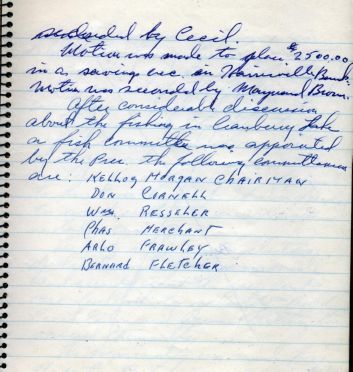 seconded by Cecil.
Motion was made to place $2500.00
in a saving acc. in Bank.
Motion was seconded by Maynard Brown.
After considerable discussion
about the fishing in Cranberry Lake
a fish committee was appointed
by the Pres. the following committeemen
are: KELLOG MORGAN CHAIRMAN
DON CORNELL
Wm. RESSELER
CHAS MERCHANT
ARLO FRAWLEY
BERNARD FLETCHER